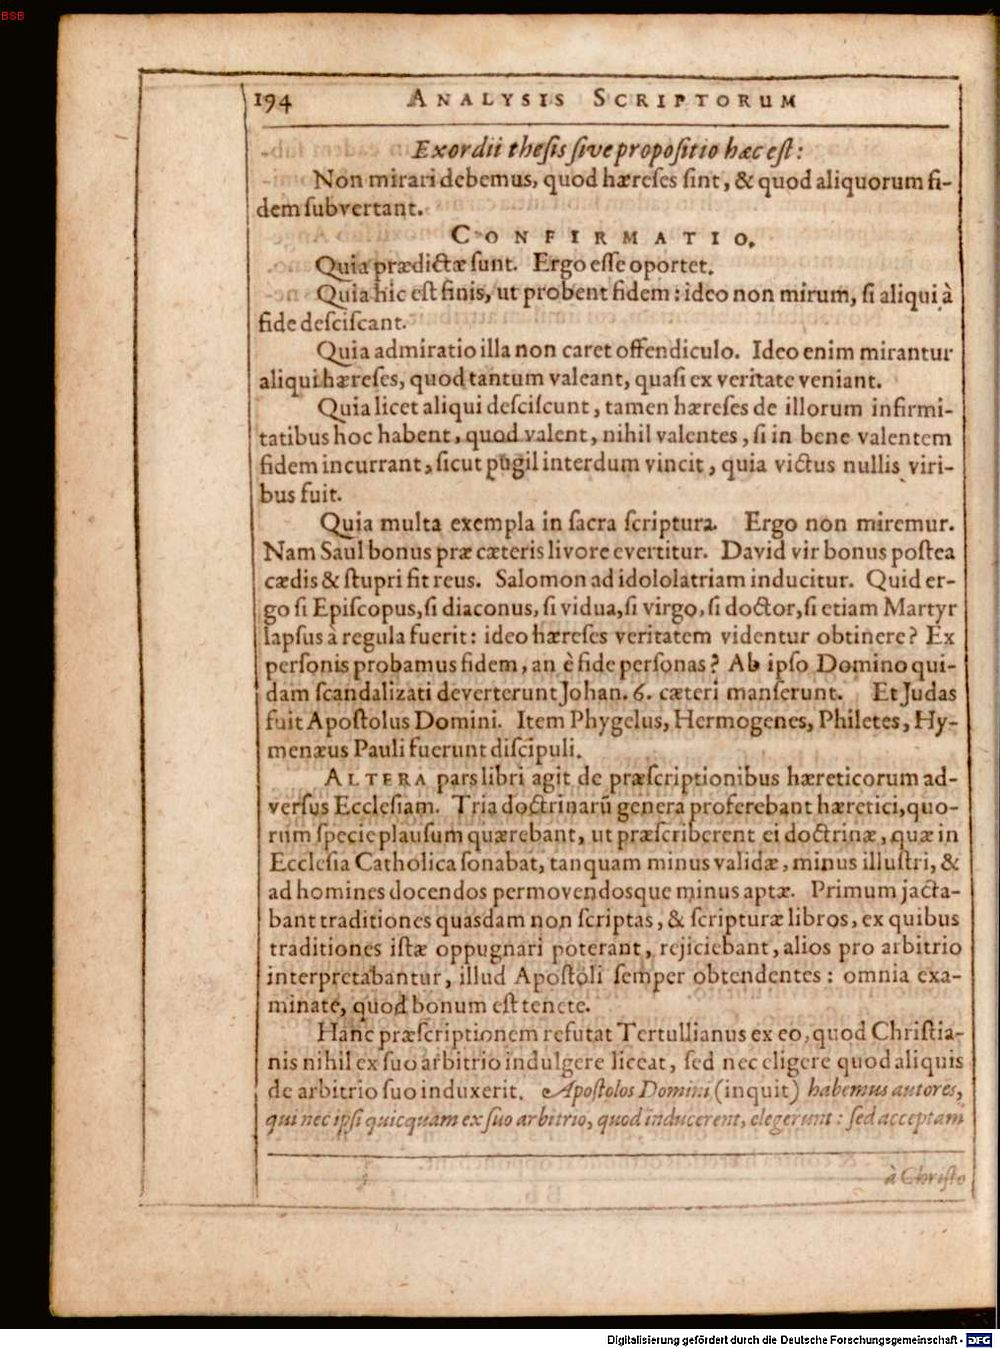 BSB
194 ANALYSIS SCRIPTORUM
Exordii thesis sive propositio hæc est:
Non mirari debemus, quod hæreses sint, & quod aliquorum fi-
dem subvertant.
CONFIRMATIO.
Quia prædictæ sunt. Ergo esse oportet.
Quia hic est finis, ut probent fidem: ideo non mirum, si aliqui à
fide desciscant.
Quia admiratio illa non caret offendiculo. Ideo enim mirantur
aliqui hæreses, quod tantum valeant, quasi ex veritate veniant.
Quia licet aliqui desciscunt, tamen hæreses de illorum infirmi-
tatibus hoc habent, quod valent, nihil valentes, si in bene valentem
fidem incurrant, sicut pugil interdum vincit, quia victus nullis viri-
bus fuit.
Quia multa exempla in sacra scriptura. Ergo non miremur.
Nam Saul bonus præ cæteris livore evertitur. David vir bonus postea
cædis & stupri fit reus. Salomon ad idololatriam inducitur. Quid er-
go si Episcopus, si diaconus, si vidua, si virgo, si doctor, si etiam Martyr
lapsus à regula fuerit: ideo hæreses veritatem videntur obtinere? Ex
personis probamus fidem, an è fide personas? Ab ipso Domino qui-
dam scandalizati deverterunt Johan. 6. cæteri manserunt. Et Judas
fuit Apostolus Domini. Item Phygelus, Hermogenes, Philetes, Hy-
menæus Pauli fuerunt discipuli.
ALTERA pars libri agit de præscriptionibus hæreticorum ad-
versus Ecclesiam. Tria doctrinarū genera proferebant hæretici, quo-
rum specie plausum quærebant, ut præscriberent ei doctrinæ, quæ in
Ecclesia Catholica sonabat, tanquam minus validæ, minus illustri, &
ad homines docendos permovendosque minus aptæ. Primum jacta-
bant traditiones quasdam non scriptas, & scripturæ libros, ex quibus
traditiones istæ oppugnari poterant, rejiciebant, alios pro arbitrio
interpretabantur, illud Apostoli semper obtendentes: omnia exa-
minate, quod bonum est tenete.
Hanc præscriptionem refutat Tertullianus ex eo, quod Christia-
nis nihil ex suo arbitrio indulgere liceat, sed nec eligere quod aliquis
de arbitrio suo induxerit. Apostolos Domini (inquit) habemus autores,
qui nec ipsi quicquam ex suo arbitrio, quod inducerent, elegerunt: sed acceptam
à Christo
Digitalisierung gefördert durch die Deutsche Forschungsgemeinschaft - DFG